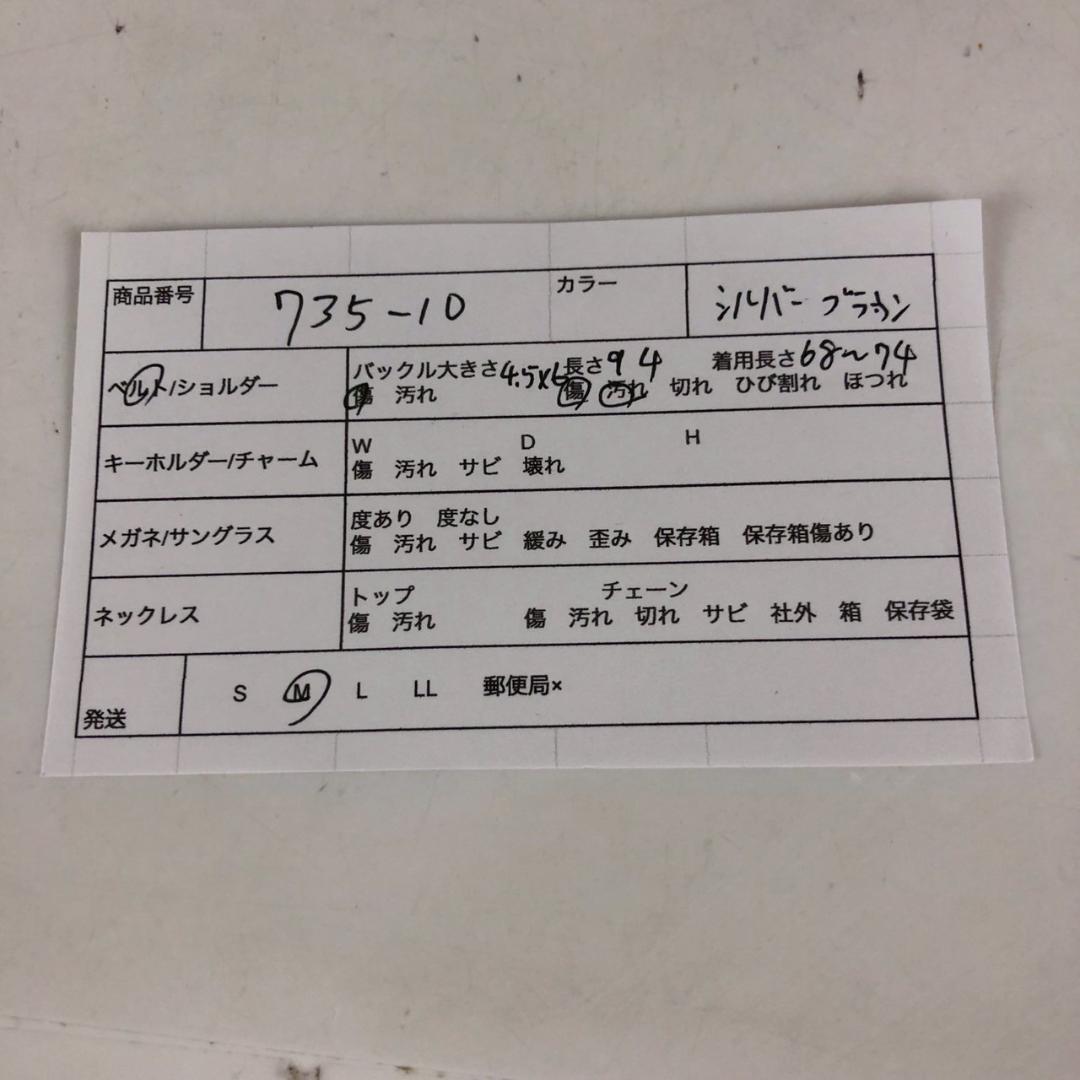 商品番号 735-10 カラー シルバー ブラウン
ベルト/ショルダー
バックル大きさ4.5×6 長さ94 着用長さ68~74
傷 汚れ 傷 汚れ 切れ ひび割れ ほつれ
キーホルダー/チャーム
W D H
傷 汚れ サビ 壊れ
メガネ/サングラス
度あり 度なし
傷 汚れ サビ 緩み 歪み 保存箱 保存箱傷あり
ネックレス
トップ チェーン
傷 汚れ 傷 汚れ 切れ サビ 社外 箱 保存袋
発送 S M L LL 郵便局×